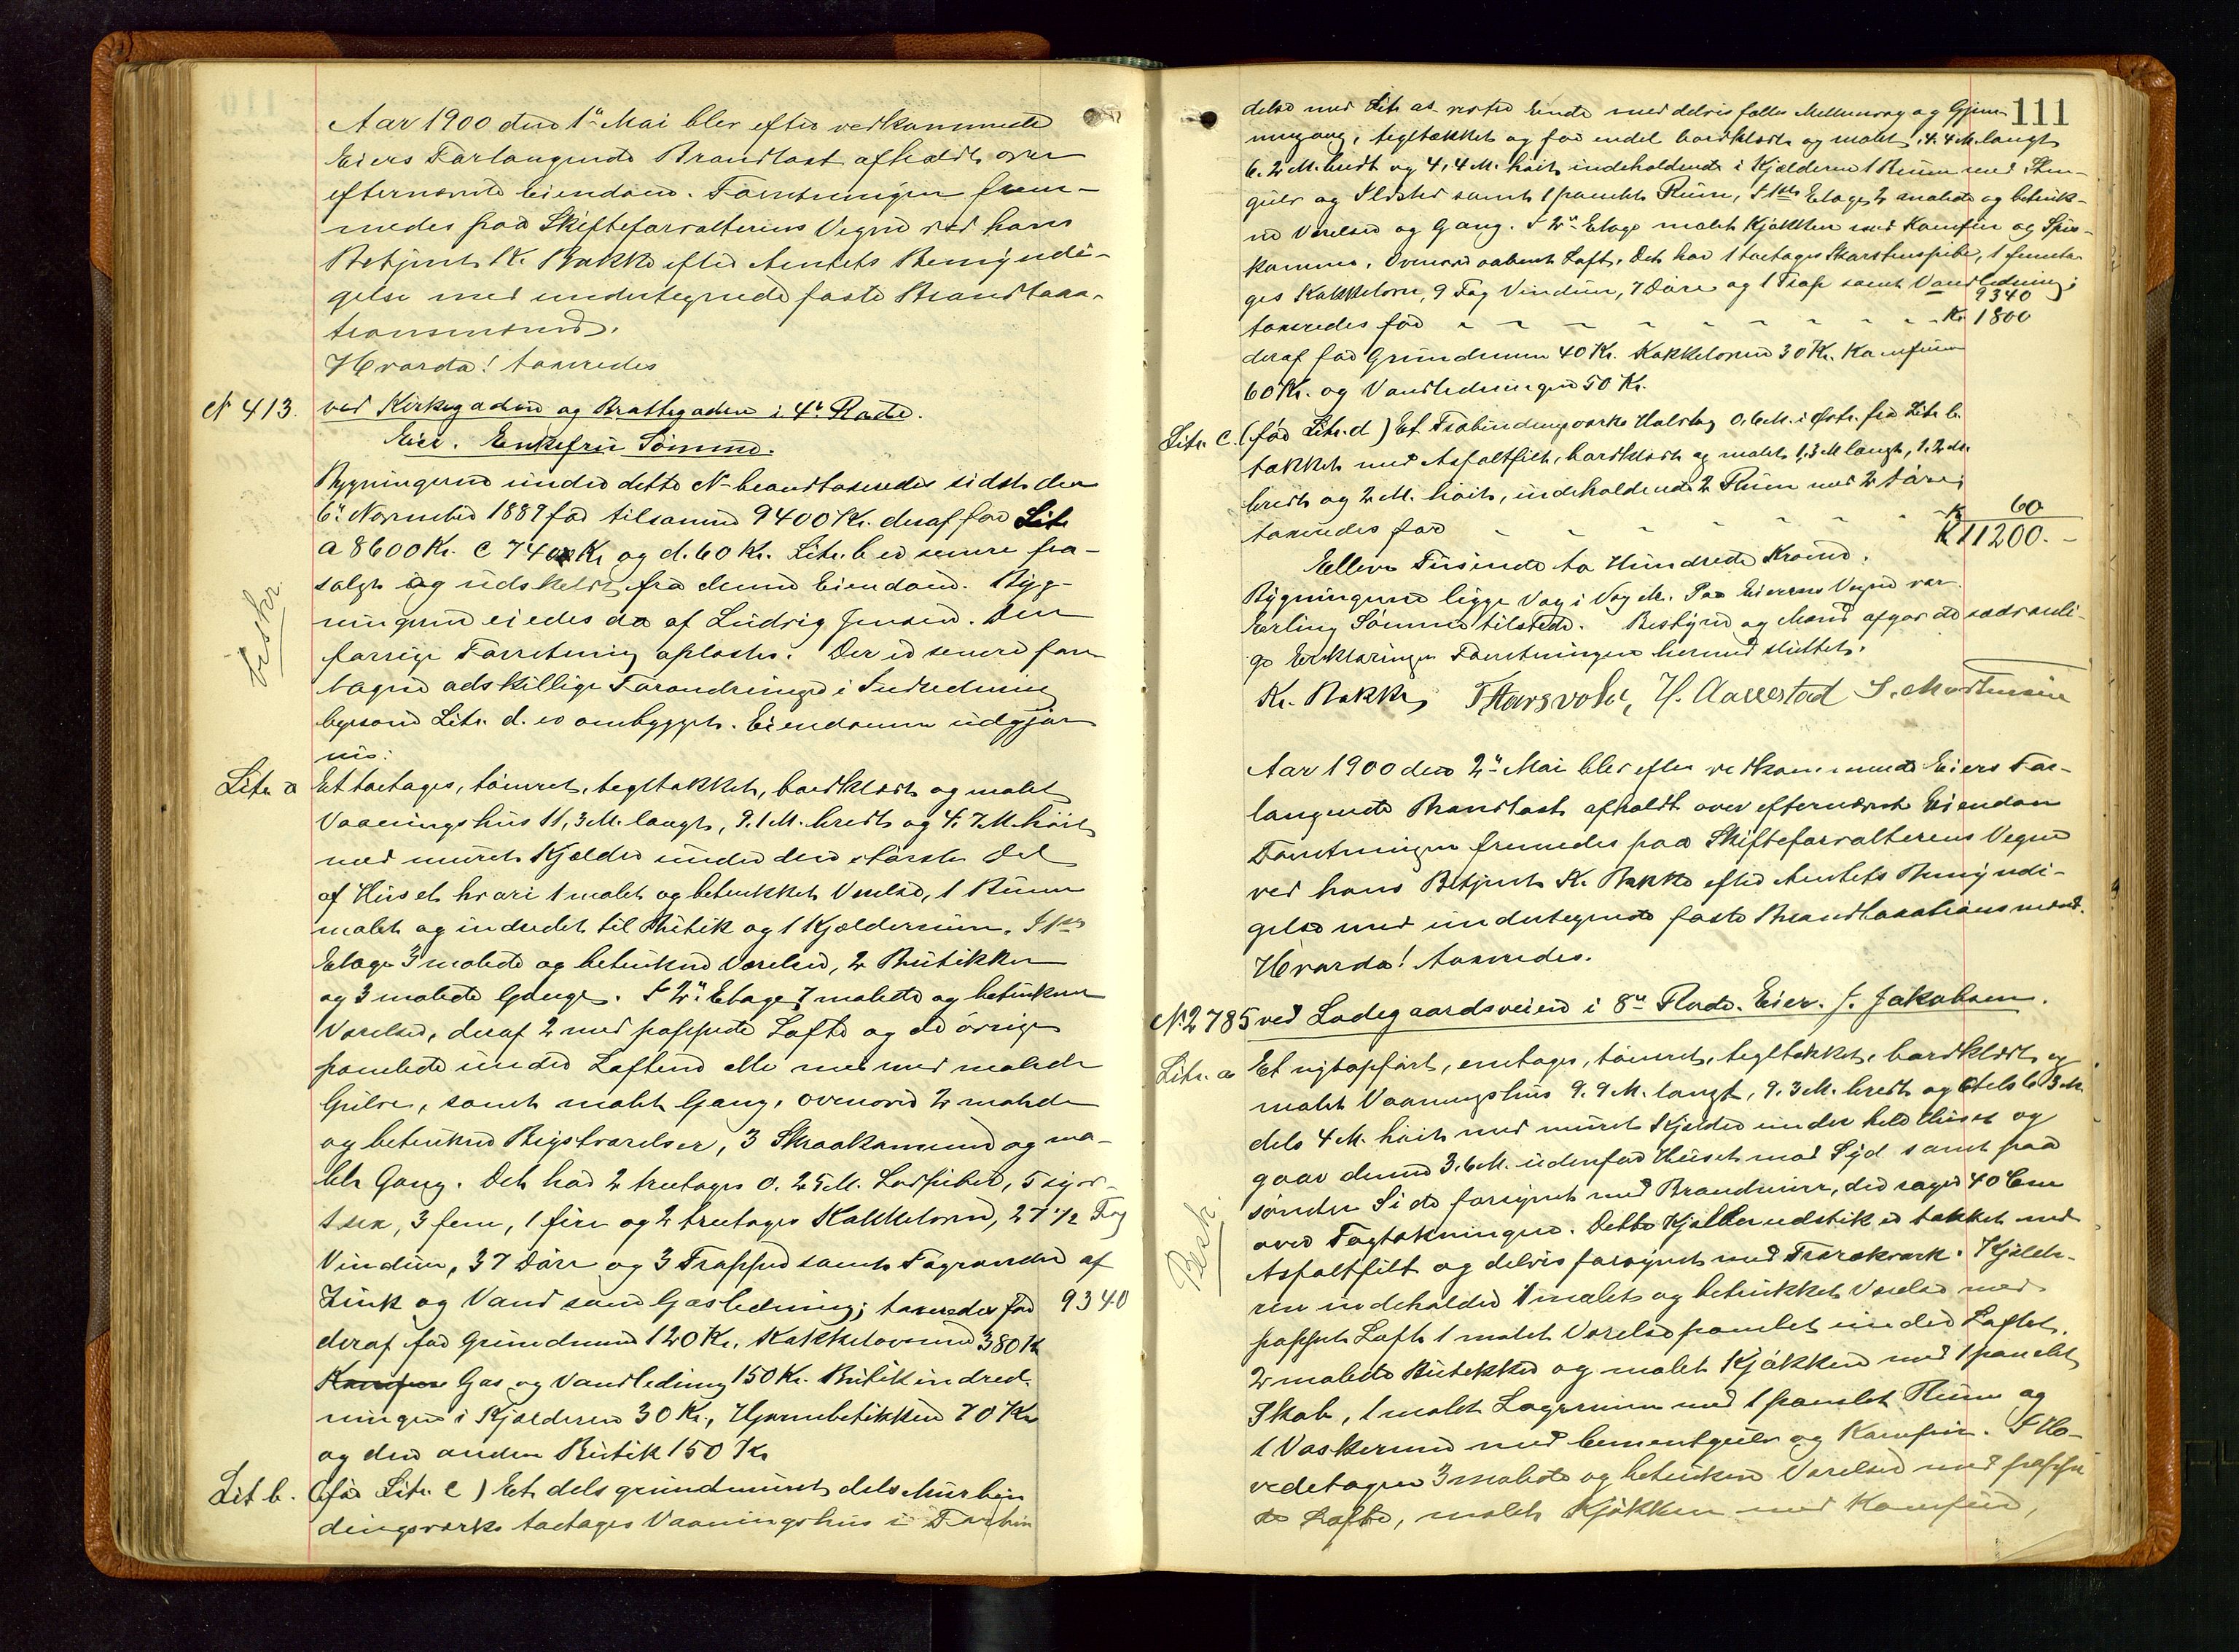 Aar 1900 den 1ª Mai blev efter vedkommende
Eiers Forlangende Brandtaxt afholdt over
efternævnte Eiendom. Forretningen frem-
medes paa Skifteforvalterens Vegne ved hans
Betjent K. Bakke efter Amtets Bemyndi-
gelse med undertegnede faste Brandtaxa-
tionsmænd.
Hvorda! taxeredes
N 413. ved Kirkegaden og Brattegaden i 4ª Rode.
Eier. Enkefru Sømme.
Bygningerne under dette N- brandtaxeredes sidst den
6ª November 1889 for tilsammen 9400 Kr. deraf for Litr
a 8600 Kr. c 740 Kr og d. 60 Kr. Litr. b er senere fra-
solgt og udskildt fra denne Eiendom. Byg-
ningerne eiedes da af Ludvig Jensen. Den
forrige Forretning oplæstes. Der er senere fore-
tagne adskillige Forandringer i Indredning
ligesom Litr. d. er ombygget. Eiendommen udgjør
nu:
Beskr
Litr a Et toetages, tømret, tegltækket, bordklædt og malet
Vaaningshus 11,3 M. langt, 9.1 M. bredt og 4.7 M. høit
med muret Kjelder under den største Del
af Huset hvori 1 malet og betrukket Værelse, 1 Rum
malet og indredet til Butik og 1 Kjælderrum. I 1ste
Etage 3 malede og betrukne Værelser, 2 Butikker
og 3 malede Gange. I 2ª Etage 7 malede og betrukne
Værelser, deraf 2 med pappede Lofte og de øvrige
panelede under Loftene alle med malede
Gulve, samt malet Gang, ovenover 2 malede
og betrukne Kvistværelser, 3 Skraakammere og ma-
let Gang. Det har 2 treetages 0.25 M. Lodpiber, 5 syv-
1 sex, 3 fem, 1 fire og 2 treetages Kakkelovne, 27 1/2 Fag
Vinduer, 37 Døre og 3 Trapper samt Tagrender af
Zink og Vand samt Gasledning; taxeredes for 9340
deraf for Grundmuren 120 Kr. Kakkelovnene 380 Kr
Kamfure Gas og Vandledning 150 Kr. Butikindred-
ningen i Kjælderen 30 Kr., Hjørnebutikken 70 Kr
og den anden Butik 150 Kr
Lit b. (før Litr. c) Et dels grundmuret dels Murbin
dingsverks toetages Vaaningshus i Forbin
111
delse med Litr a's østre Ende med delvis fælles Mellemvæg og Gjen-
nemgang, tegltækket og for endel bordklædt og malet, 4.4 M. langt
6.2 M. bredt og 4,4 M. høit indeholdende i Kjælderen 1 Rum med Sten-
gulv og Ildsted samt 1 panelet Rum, I 1ste Etage 2 malede og betruk-
ne Værelser og Gang. I 2ª Etage malet Kjøkken med Kamfur og Spis-
kammer. Ovenover aabent Loft. Det har 1 toetages Skorstenspibe, 1 femeta-
ges Kakkelovn, 9 Fag Vinduer, 7 Døre og 1 Trap samt Vandledning;
9340
taxeredes for - - - - - - - - - Kr. 1800
deraf for Grundmuren 40 Kr. Kakkelovnen 30 Kr. Kamfuren
60 Kr. og Vandledningen 50 Kr.
Litr. c. (før Litr. d) Et Træbindingsverks Halvtag 0,6 M. i Østr. fra Litr b.
tækket med Asfaltfilt, bordklædt og malet 1,3 M langt, 1.2 M.
bredt og 2 M. høit, indeholdende 2 Rum med 2 Døre;
taxeredes for - - - - - - - Kr 60
Kr 11200. -
Elleve Tusinde to Hundrede Kroner.
Bygningerne ligge Væg i Væg M. Paa Eierens Vegne var
Erling Sømme tilstede. Bestyrer og Mænd afgav de sædvanli-
ge Erklæringer Forretningen hermed sluttet.
Kr. Bakke, T Harsvold, H. Aarrestad S. Mortensen
Aar 1900 den 2ª Mai blev efter vedkommende Eiers For-
langende Brandtaxt afholdt over efternævnte Eiendom
Forretningen fremmedes paa Skifteforvalterens Vegne
ved hans Betjent K. Bakke efter Amtets Bemyndi-
gelse med undertegnede faste Brandtaxationsmænd.
Hvorda! taxeredes.
N. 2785 ved Ladegaardsveien i 8ª Rode. Eier. J. Jakobsen.
Beskr
Litr. a Et nyopført, enetages, tømret, tegltækket, bordklædt og
malet Vaaningshus 9.9 M. langt, 9.3 M. bredt og dels 6.3 M.
dels 4 M. høit med muret Kjelder under hele Huset og
gaar denne 3.6 M. udenfor Huset mod Syd samt paa
søndre Side forsynet med Brandmur, der rager 40 Ctm
over Tagtækningen. Dette Kjelderudstik er tækket med
Asfaltfilt og delvis forsynet med Træværk. Kjelde-
ren indeholder 1 malet og betrukket Værelse med
pappet Loft 1 malet Værelse panelet under Loftet.
2 malede Butikker og malet Kjøkken med 1 panelet
Skab, 1 malet Lagerrum med 1 panelet Rum og
1 Vaskerum med Cementgulv og Kamfur. I Ho-
vedetagen 3 malede og betrukne Værelser med pappe
de Lofte, malet Kjøkken med Kamfur,